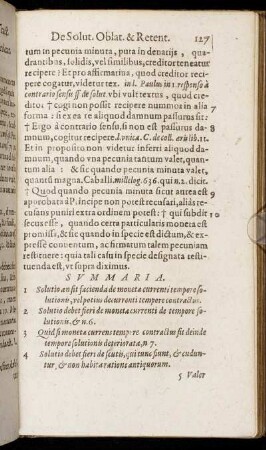 De Solut. Oblat. & Retent. 127
tum in pecunia minuta, puta in denarijs, qua-
drantibus, solidis, vel similibus, creditor teneatur
recipere? Et pro affirmatiua, quod creditor reci-
pere cogatur, videtur tex. in l. Paulus in 1. responso à
contrario sensu ff. de solut. vbi vult textus, quod cre-
ditor † cogi non possit recipere nummos in alia
forma 7 si ex ea re aliquod damnum passurus sit:
† Ergo à contrario sensu, si non est passurus da- 8
mnum, cogitur recipere. l. vnica. C. de coll. æris lib. 11.
Et in proposito non videtur inferri aliquod da-
mnum, quando vna pecunia tantum valet, quan-
tum alia: & sic quando pecunia minuta valet,
quantũ magna. Caballi. milleloq. 636. qui n. 2. dicit.
† Quod quando pecunia minuta sicut aurea est 9
aprobata à P. incipe non potest recusari, alias re-
cusans puniri extra ordinem potest: † qui subdit 10
secus esse, quando certa particularis moneta est
promissa, & sic quando in specie est dictum, & ex-
presse conuentum, ac firmatum talem pecuniam
restituere: quia tali casu in specie designata resti-
tuenda est, vt supra diximus.
SVMMARIA.
1 Solutio an sit facienda de moneta currenti tempore so-
lutionis, vel potius decurrenti tempore contractus.
2 Solutio debet fieri de moneta currenti de tempore so-
lutionis. & n. 6.
3 Quid si moneta currens tempore contractus sit deinde
tempore solutionis deteriorata, n 7.
4 Solutio debet fieri de scutis, qui tunc sunt, & cudun-
tur, & non habita ratione antiquorum.
5 Valor